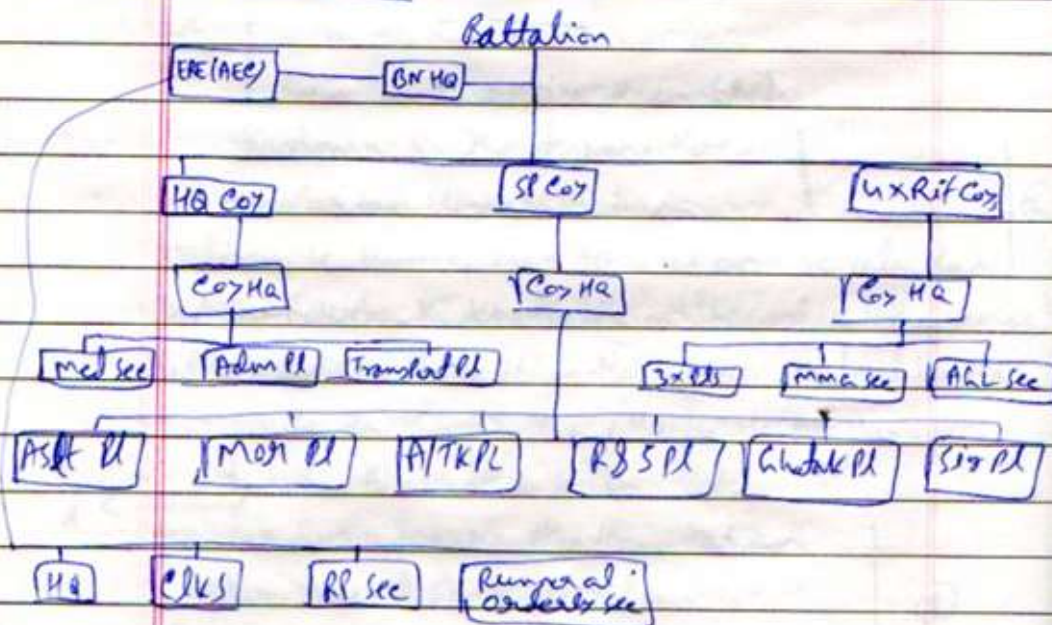 Battalion
ERE (AEC) BN HQ
HQ Coy SP Coy 4 x Rif Coys
Coy HQ Coy HQ Coy HQ
Med Sec Adm Pl Transport Pl 3 x Pls MMG Sec AGL Sec
Aslt Pl Mor Pl A/TK PL R & S Pl Ghatak Pl Sig Pl
HQ Clks RP Sec Runner orderly Sec